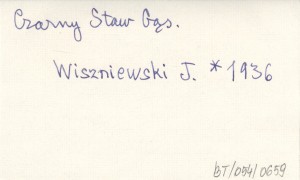 Czarny Staw Gąs.
Wiszniewski J. *1936
BT/054/0659